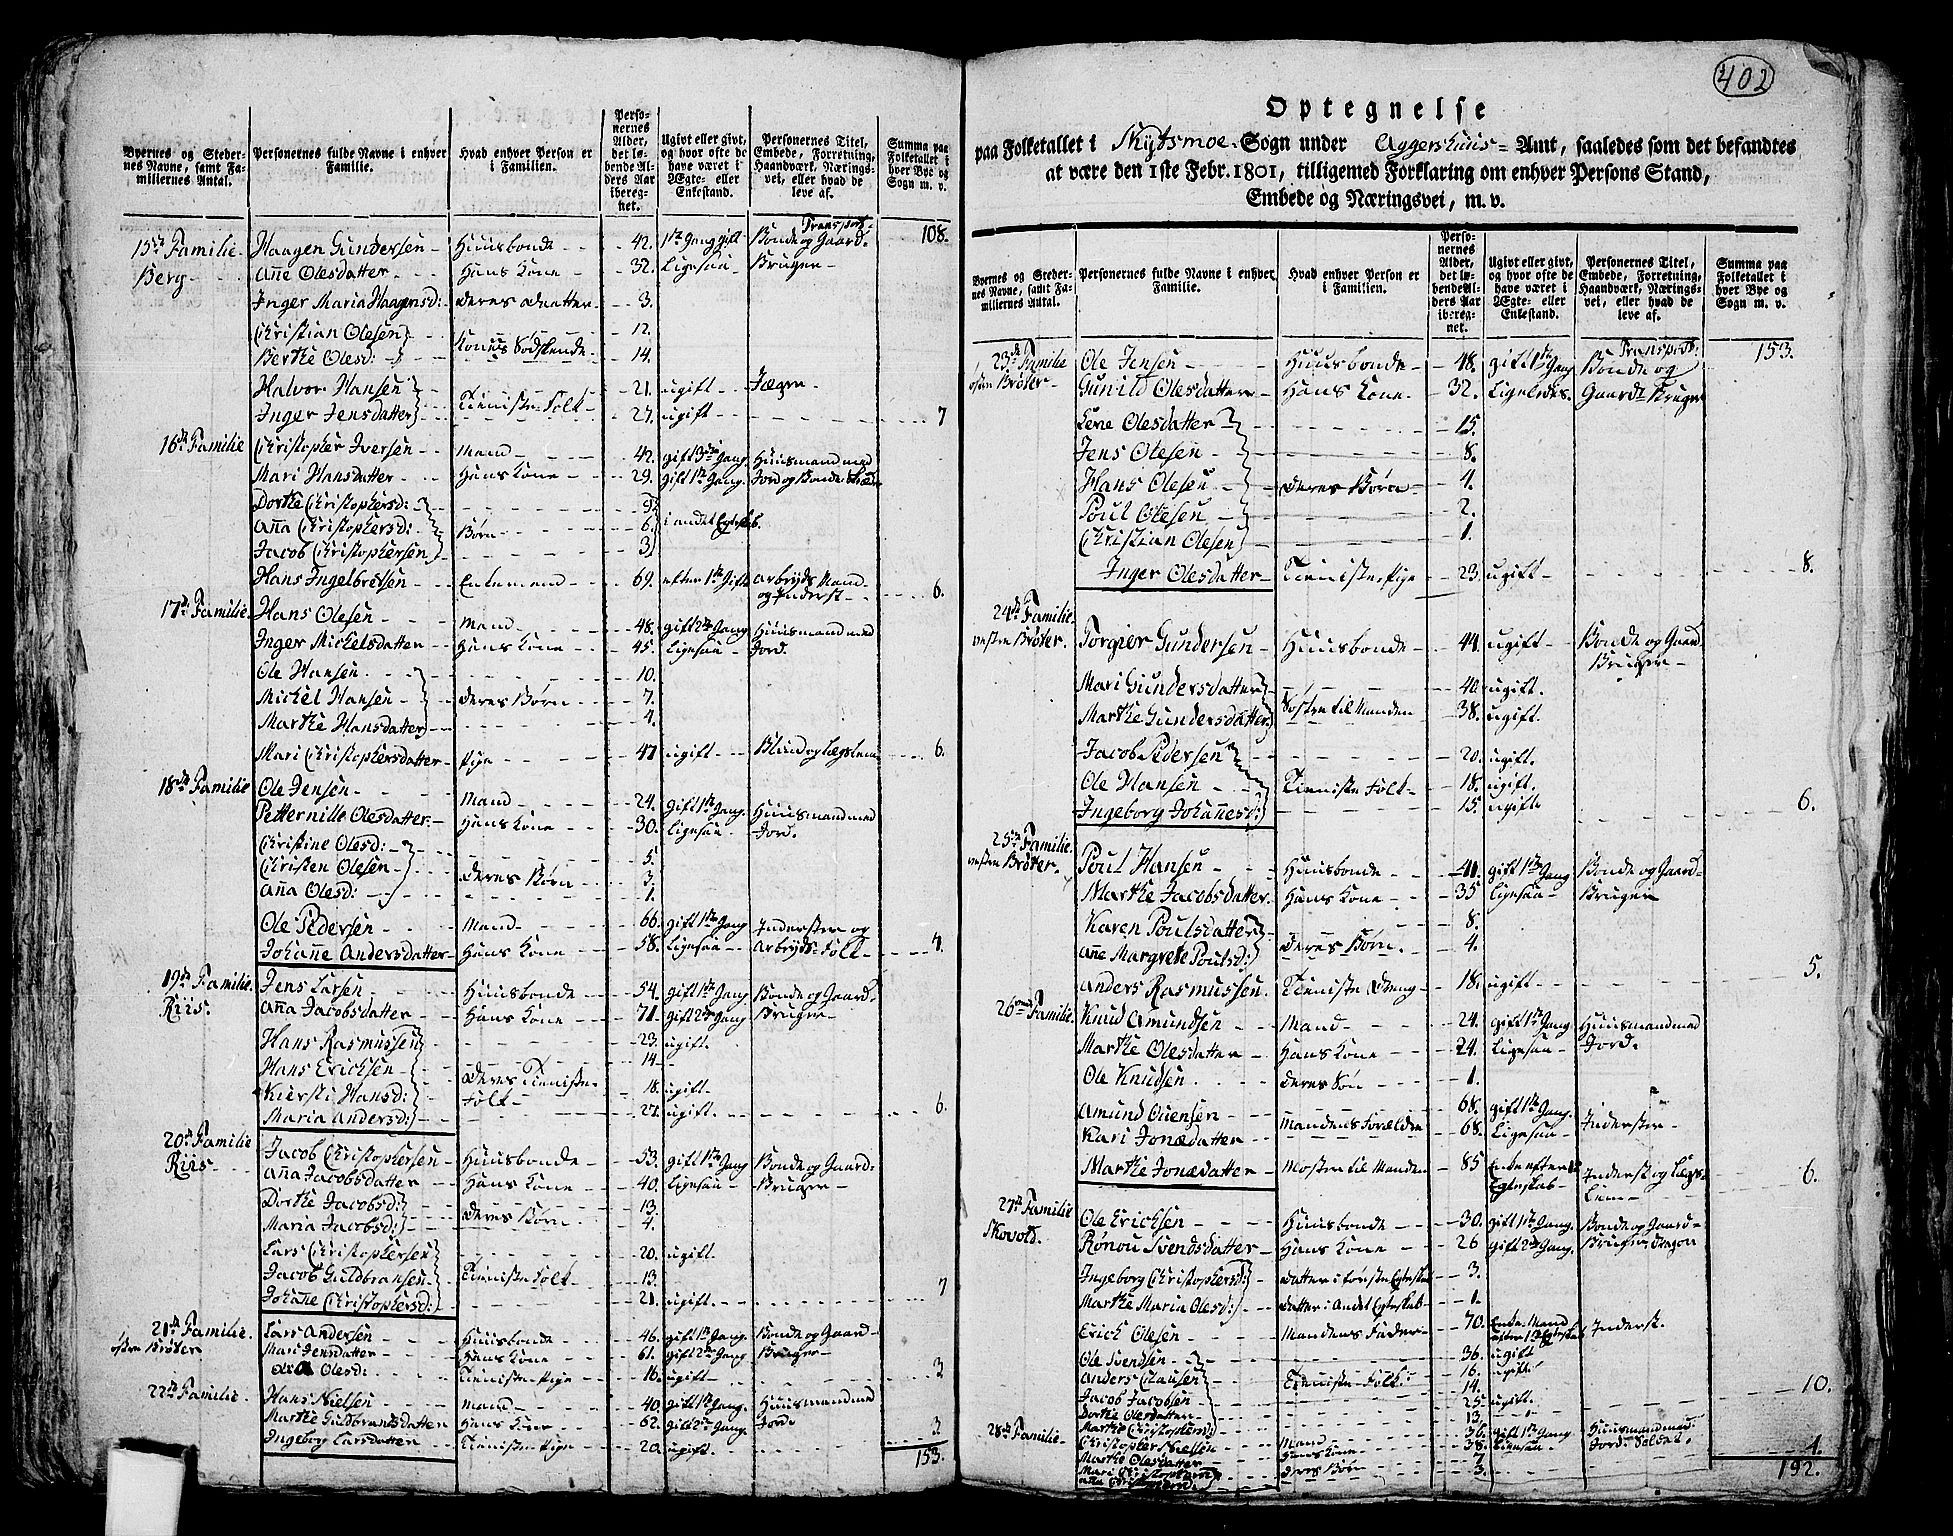 Byernes og Steder-
nes Navne, samt Fa-
miliernes Antal.
Personernes fulde Navne i enhver
Familie.
Hvad enhver Person er
i Familien.
Perso-
nernes
Alder,
det lø-
bende Al-
ders Aar
ibereg-
net.
Ugivt eller givt,
og hvor ofte de
have været i
Ægte- eller
Enkestand.
Personernes Titel,
Embede, Forretning,
Haandværk, Nærings-
vei, eller hvad de
leve af.
Summa paa
Folketallet i
hver Bye og
Sogn m. v.
Transport: 108.
15de Familie Haagen Gundersen Huusbonde 42. 1ste Gang gift Bonde og Gaard-
Berg Anne Olesdatter Hans Kone 32. Ligesaa Bruger
Inger Maria Haagensd: Deres Datter 3.
Christian Olesen 12.
Berthe Olesd: Konens Sødskende 14.
Halvor Hansen 21. ugift Jæger
Inger Jensdatter Tieniste Folk 27. ugift 7
16de Familie Christopher Iversen Mand 42. gift 3die Gang Huusmand med
Mari Hansdatter Hans Kone 29. gift 1ste Gang Jord og Bonde
Dorthe Christophersd: 9
Anna Christophersd: Børn 6. i andet Egteskab
Jacob Christophersen 3
Hans Ingelbretsen Enkemand 69. efter 1ste Gift Arbeyds Mand
og Inderst 6.
17de Familie Hans Olesen Mand 48. gift 2den Gang Huusmand med
Inger Mickelsdatter Hans Kone 45. Ligesaa Jord.
Ole Hansen 10.
Michel Hansen Deres Børn 7.
Marthe Hansdatter 4.
Mari Christophersdatter Pige 47 ugift Blind og Lægslem 6.
18de Familie Ole Jensen Mand 24. gift 1ste Gang Huusmand med
Petternille Olesdatter Hans Kone 30. Ligesaa Jord.
Christine Olesd: 5.
Christen Olesen Deres Børn 3.
Anna Olesd: 1.
Ole Pedersen Mand 66. gift 1ste Gang Inderster og
Johanne Andersdatter Hans Kone 58. Ligesaa Arbeyds Folk 4.
19de Familie Jens Larsen Huusbonde 54. gift 1ste Gang Bonde og Gaard-
Riis. Anna Jacobsdatter Hans Kone 71. gift 2den Gang Bruger
Hans Rasmussen 23. ugift.
Hans Ericksen 14
Kiersti Hansd: Deres Tieniste 18. ugift.
Maria Andersd: Folk 27. ugift. 6.
20de Familie Jacob Christophersen Huusbonde 53. gift 1ste Gang Bonde og Gaard-
Riis Anna Jacobsdatter Hans Kone 40. Ligesaa Bruger
Dorthe Jacobsd: 13.
Maria Jacobsd: Deres Børn 4.
Lars Christophersen 20. ugift.
Jacob Guldbransen Tieniste Folk 13.
Johanne Christophersd: 21. ugift. 7
21de Familie Lars Andersen Huusbonde 46. gift 1ste Gang Bonde og Gaard-
østen Brøter Mari Jensdatter Hans Kone 61. gift 2den Gang Bruger
Olesd: Tieniste Pige 16. ugift 3
22de Familie Hans Nielsen Mand 40. gift 1ste Gang. Huusmand med
Marthe Guldbrantsdatter Hans Kone 62. gift 2den Gang. Jord
Ingeborg Larsdatter Tieniste Pige 20. ugift. 3
153.
402
Optegnelse
paa Folketallet i Skydsmoe Sogn under Aggershuus- Amt, saaledes som det befandtes
at være den 1ste Febr. 1801, tilligemed Forklaring om enhver Persons Stand,
Embede og Næringsvei, m. v.
Byernes og Steder-
nes Navne, samt Fa-
miliernes Antal.
Personernes fulde Navne i enhver
Familie.
Hvad enhver Person er
i Familien.
Perso-
nernes
Alder,
det lø-
bende Al-
ders Aar
ibereg-
net.
Ugivt eller givt,
og hvor ofte de
have været i
Ægte- eller
Enkestand.
Personernes Titel,
Embede, Forretning,
Haandværk, Nærings-
vei, eller hvad de
leve af.
Summa paa
Folketallet i
hver Bye og
Sogn m. v.
Transport: 153.
23de Familie Ole Jensen Huusbonde 48. gift 1ste Gang Bonde og
østen Brøter Gunild Olesdatter Hans Kone 32. Ligeledes. Gaard Bruger
Lene Olesdatter 15.
Jens Olesen 8.
Hans Olesen Deres Børn 4.
Poul Olesen 2.
Christian Olesen 1.
Inger Olesdatter Tieniste Pige 23. ugift 8.
24de Familie.
vesten Brøter. Torgier Gundersen Huusbonde 44. ugift Bonde og Gaard
Bruger
Mari Gundersdatter 40. ugift.
Marthe Gundersdatter Søstre til Manden 38. ugift.
Jacob Pedersen 20. ugift.
Ole Hansen Tieniste Folk 18. ugift.
Ingeborg Johannesd: 15. ugift 6.
25de Familie.
vesten Brøter. Poul Hansen Huusbonde 41. gift 1ste Gang Bonde og Gaard-
Marthe Jacobsdatter. Hans Kone 35 Ligesaa Bruger
Karen Poulsdatter 8.
Anne Margrete Poulsd: Deres Børn. 4.
Anders Rasmussen. Tieniste Dreng 18. ugift 5.
26de Familie. Knud Amundsen Mand 24. gift 1ste Gang Huusmand med
Marthe Olesdatter Hans Kone 24. Ligesaa Jord.
Ole Knudsen. Deres Søn 1.
Amund Ouensen 68. gift 1ste Gang.
Kari Jonædatter Mandens Forældre 68. Ligesaa Inderster
Marthe Jonædatter Moster til Manden 85 Enke efter 1ste Inderst og Lægs- 6.
Egteskab Lem
27de Familie Ole Ericksen Huusbonde 30. gift 1ste Gang. Bonde og Gaard-
Skovold. Rønou Svendsdatter Hans Kone 26 gift 2den Gang. Bruger, Dragon
Ingeborg Christophersd: Datter i første Egteskab 3.
Marthe Maria Olesd: Datter i Andet Egteskab 1.
Erich Olesen Mandens Fader 70. Enke Mand Inderst.
efter 1ste Egteskab
Ole Svendsen 36. ugift
Anders Clausen Tieniste Folk: 16. ugift.
Jacob Jacobsen 14.
Dorthe Olesdatter 25. ugift.
Marthe Christophersd: 13. 10.
28de Familie Christopher Nielsen Mand 36. gift 1ste Gang Huusmand med
Marthe Olesdatter Hans Kone 38. Ligesaa Jord. Soldat.
Mari Christophersd: Deres Børn 7
Christophersd: 3. 4.
192.